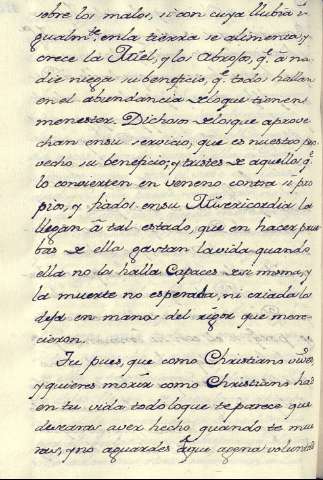 sobre los malos, si con cuya llubia i-
gualmte. en la tierra se alimenta, y
crece la Miel, y los Abrojos, q.e á na-
die niega su beneficio, q.e todos hallan
en el abundancia de lo que tienen
menester. Dichosos de los que aprove-
chan en su servicio, que es nuestro pro-
vecho su beneficio; y tristes de aquellos q.e
lo convierten en veneno contra si pro-
pios, y fiados en su Misericordia la
llegan á tal estado, que en hacer prue-
bas de ella gastan la vida quando
ella no los halla Capaces de si misma, y
la muerte no esperada, ni criada los
dexa en manos del rigor que mere-
cieron.
Tu pues, que como Christiano vives
y quieres morir como Christiano haz
en tu vida todo lo que te parece que
desearas aver hecho quando te mue-
ras, y no aguardes á que agena voluntad